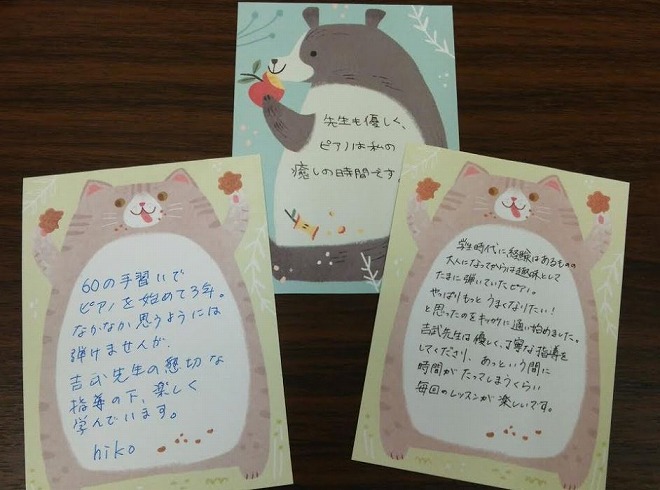 先生も優しく、
ピアノは私の
癒しの時間です。
60の手習いで
ピアノを始めて3年。
なかなか思うようには
弾けませんが、
吉武先生の懇切な
指導の下、楽しく
学んでいます。
hiko
学生時代に、経験はあるものの
大人になってからは趣味として
たまに弾いていたピアノ。
やっぱりもっとうまくなりたい！
と思ったのをキッカケに通い始めました。
吉武先生は優しく、丁寧な指導を
してくださり、あっという間に
時間がたってしまうくらい
毎回のレッスンが楽しいです。